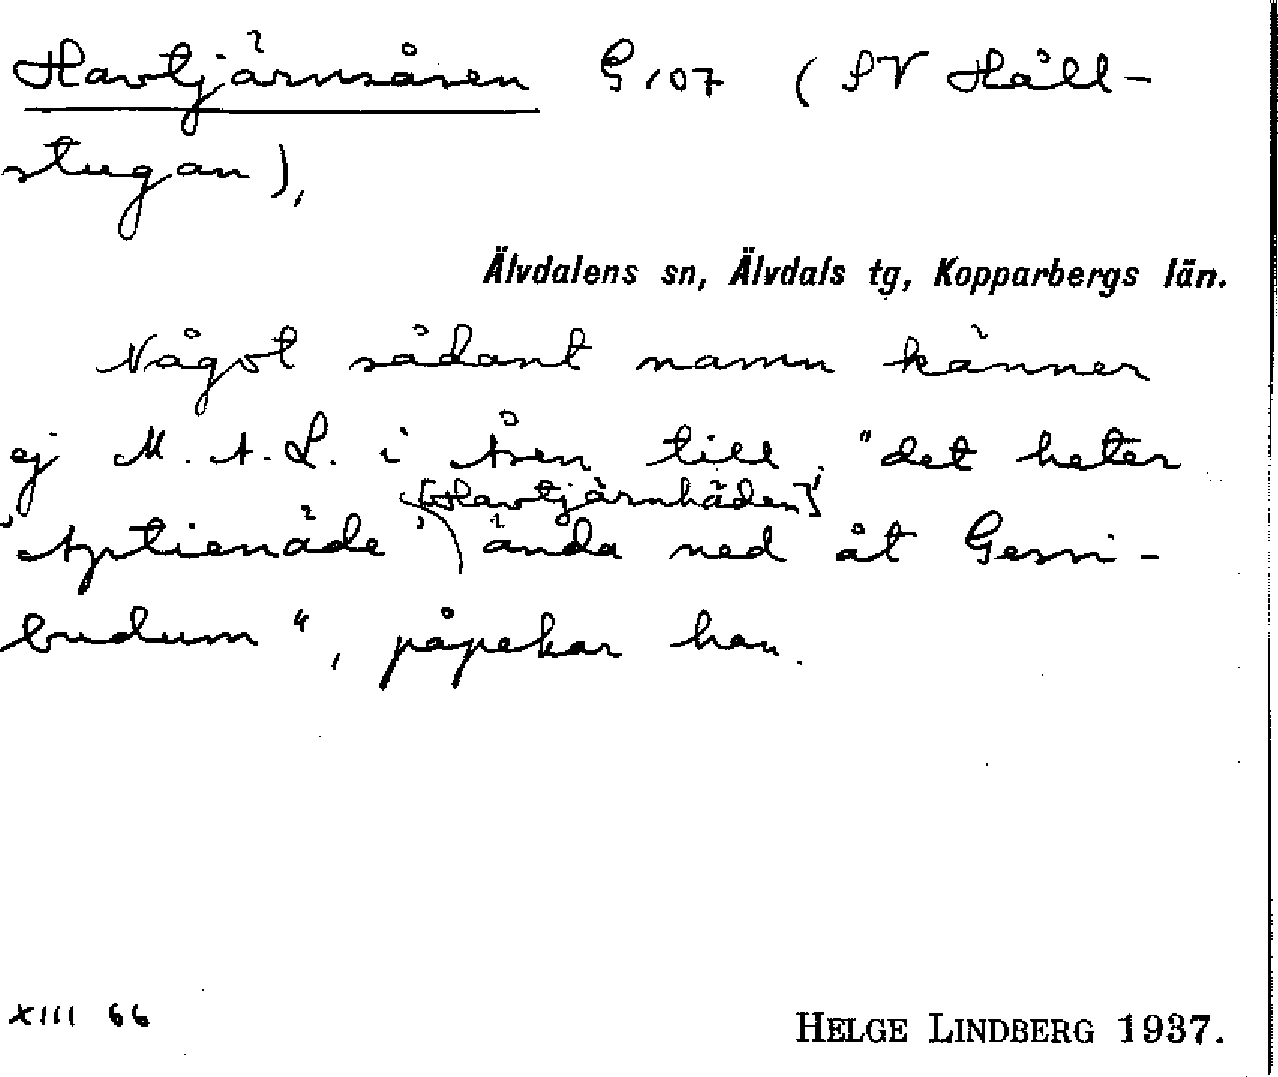 Havtjärnsåsen G 107 (SV Håll-
stugan),
Älvdalens sn, Älvdals tg, Kopparbergs län.
Något sådant namn känner
ej M. A. L. i Åsen till. "det heter
[Havtjärnhäden]
'Aptienäde' ända ned åt Gessi-
budum", påpekar han.
XIII 66
HELGE LINDBERG 1937.